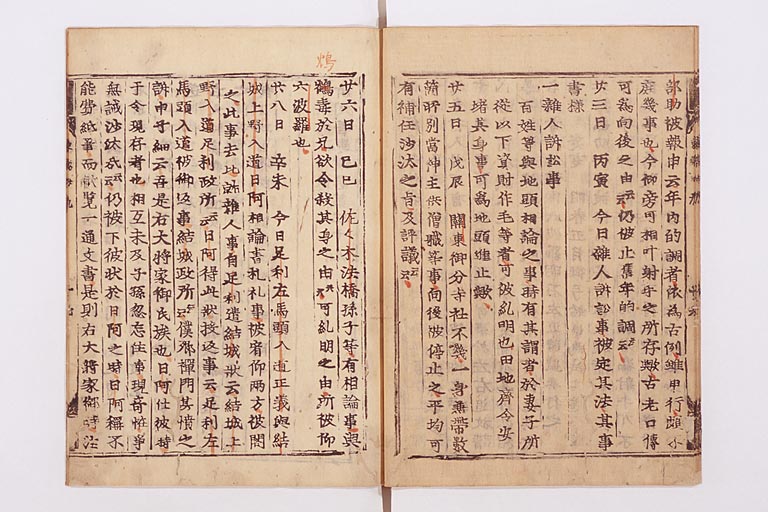 部助被報申云年内的調者依為古例雖甲行頗不
庶幾事也今御旁可相叶射手之所存歟古老口傳
可為向後之由云々仍被止舊年的調云々
廿三日 丙寅 今日雜人訴訟事被定其法其事
書樣
一雜人訴訟事
百姓等與地頭相論之事時有其謂者於妻子所
從以下資財作毛等者可被乱明也田地齊令安
堵其身事可為地頭進止歟
廿五日 戊辰 關東御分寺社不幾一身兼帶數
箇所別當神主供僧職等事向後被停止之平均可
有補任沙汰之旨及評議云々
鴆
廿六日 己巳 佐々木法橋孫子等有相論事與
鴆毒於兄欲令殺其身之由云々可乱明之由所被仰
六波羅也
廿八日 辛未 今日足利左馬頭入道正義與結
城上野入道日阿相論書札礼事被宥仰兩方被閣
之此事去比就雜人事自足利遣結城狀云結城上
野入道足利政所云々日阿得此狀投返事云足利左
馬頭入道被御返事結城政所云々僕卿禪門其憤之
訴申子細云吾是右大將家御氏族也日阿仕彼時
于今現存者也相互未及子孫忽忘往事現奇恠爭
無誡沙汰哉云々仍被下彼狀於日阿之時日阿稱不
能勞紙筆而献覽一通文書是則右大將家御時注